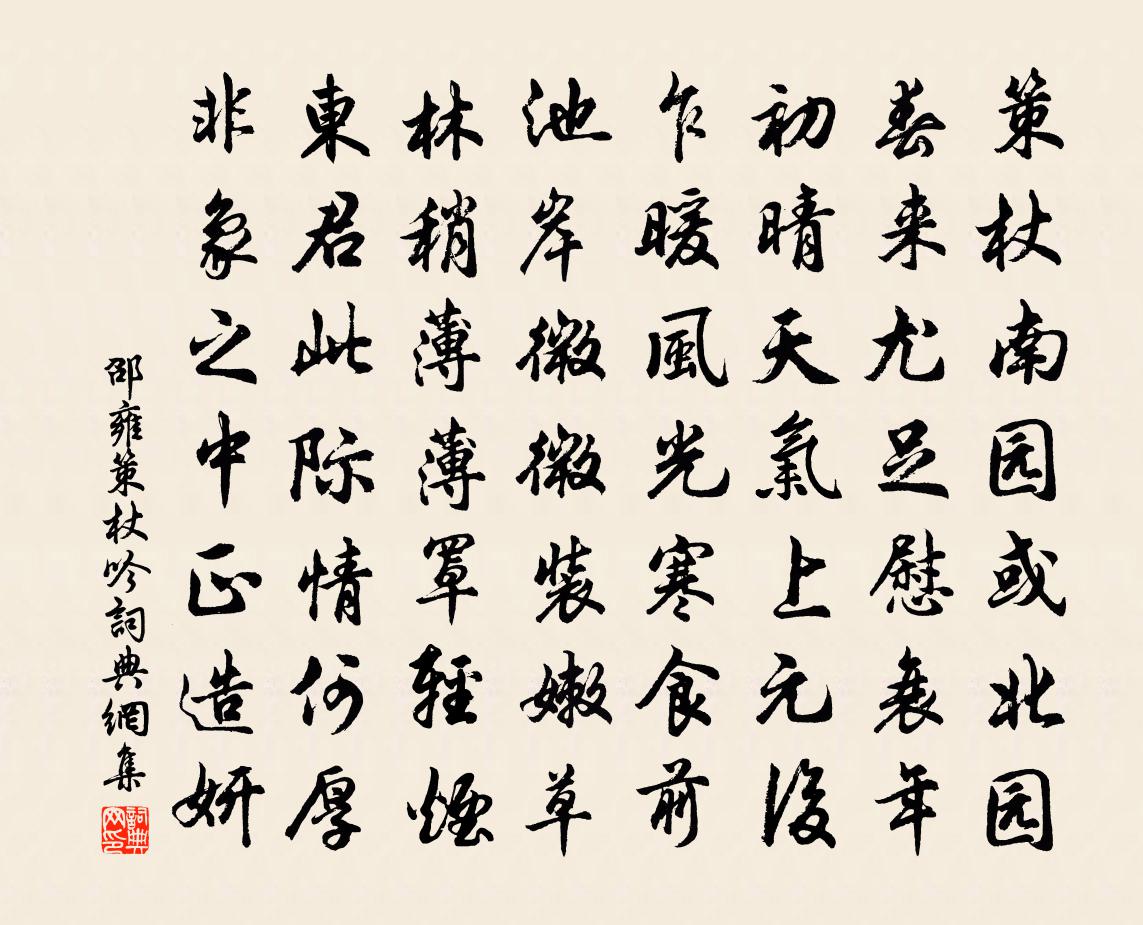 策杖南园或北园
春来尤足慰衰年
初晴天氣上元後
乍暖風光寒食前
池岸微微裝嫩草
林稍薄薄罩輕煙
東君此际情何厚
非象之中正造妍
邵雍策杖吟詞典網集
詞典网印